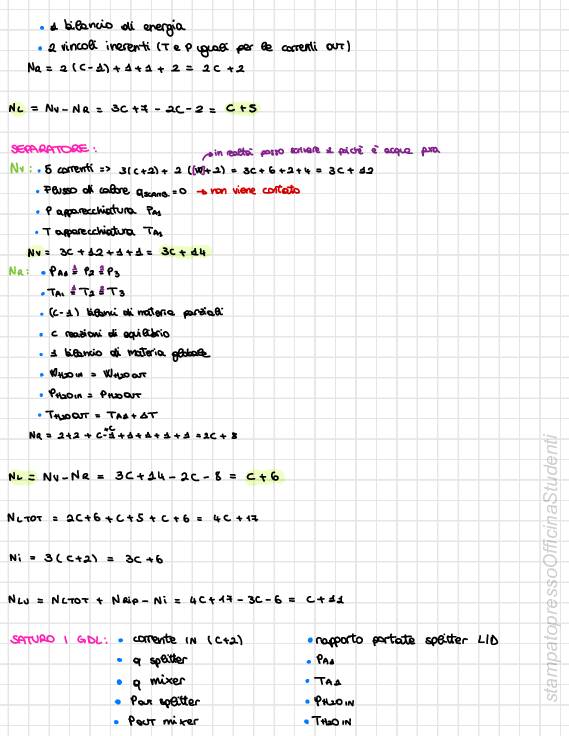 • 1 bilancio di energia
• 2 vincoli inerenti (T e P uguali per le correnti OUT)
NR = 2(C-1)+1+1+2 = 2C+2
NL = NV-NR = 3C+7-2C-2 = C+5
SEPARATORE:
→ in realtà posso scrivere 1 poichè è acqua pura
NV: • 5 correnti => 3(C+2) + 2 ((W)+2) = 3C+6+2+4 = 3C+12
• Flusso di calore qSCAMB=0 → non viene contato
• P apparecchiatura PA1
• T apparecchiatura TA1
NV = 3C+12+1+1 = 3C+14
NR: • PA1 = P2 = P3
• TA1 = T2 = T3
• (C-1) bilanci di materia parziali
• C reazioni di equilibrio
• 1 bilancio di materia globale
• WH2O IN = WH2O OUT
• PH2O IN = PH2O OUT
• TH2O OUT = TA1 + ΔT
NR = 2+2+C-1+C+1+1+1+1+1 = 2C+8
NL = NV-NR = 3C+14-2C-8 = C+6
NLTOT = 2C+6+C+5+C+6 = 4C+17
Ni = 3(C+2) = 3C+6
NLU = NLTOT + NRIP - Ni = 4C+17-3C-6 = C+11
SATURO I GDL: • corrente IN (C+2) • rapporto portate splitter L/D
• q splitter • PA1
• q mixer • TA1
• Pout splitter • PH2O IN
• Pout mixer • TH2O IN
stampatopressoOfficinaStudenti